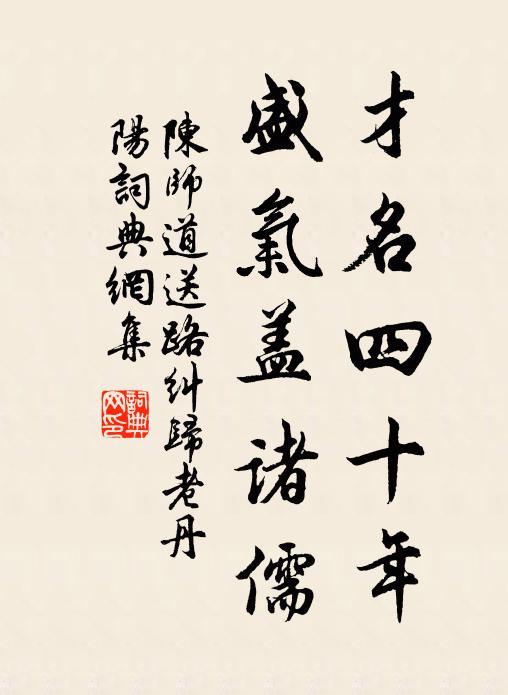 才名四十年
盛氣蓋諸儒
陳師道送路糾歸老丹
陽詞典網集
詞典
网印